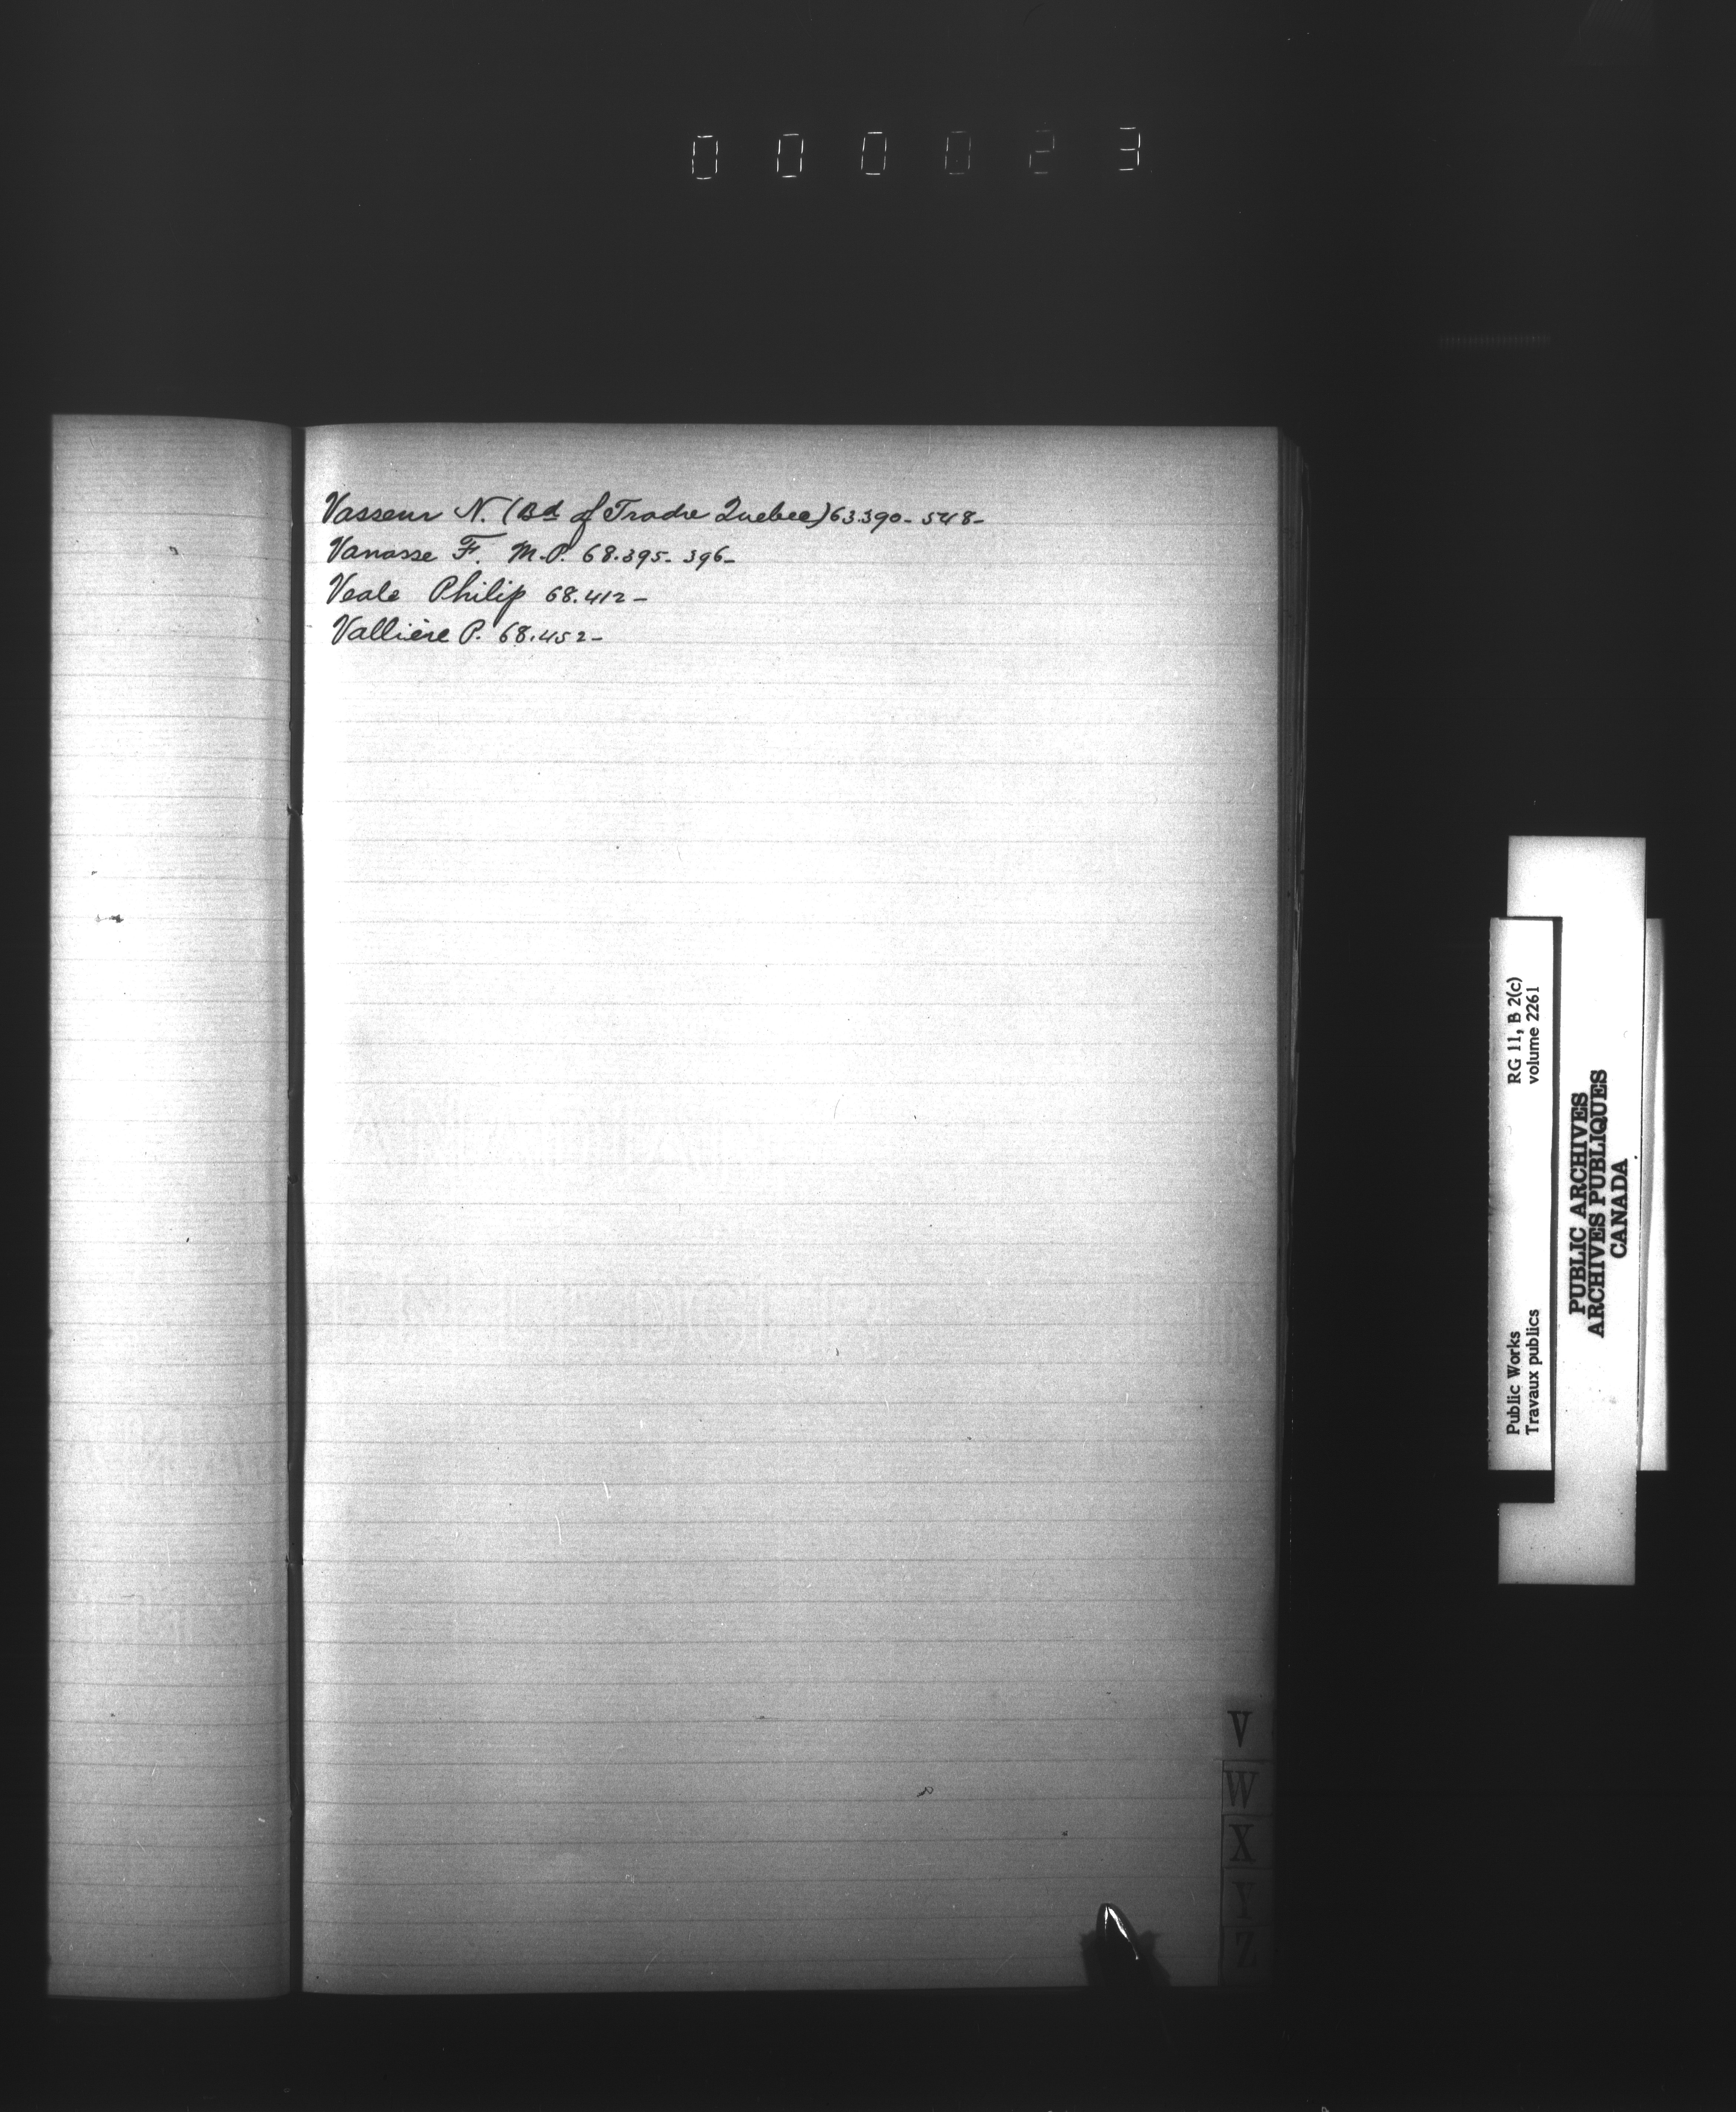 000023
Vasseur N. (Bd of Trade Quebec) 68.390- 548-
Vanasse F. M.P. 68.395- 396-
Veale Philip 68.412-
Vallière P. 68.452-
V
W
X
Y
Z
Public Works
Travaux publics
RG 11, B 2(c)
volume 2261
PUBLIC ARCHIVES
ARCHIVES PUBLIQUES
CANADA